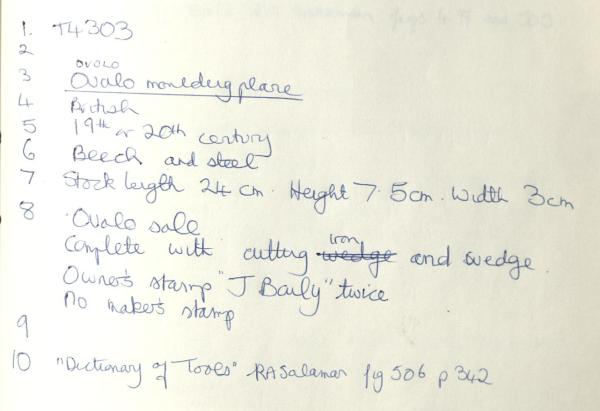 1. T4303
2
3 OVOLO
Ovalo moulding plane
4 British
5 19th or 20th century
6 Beech and steel
7 Stock length 24 cm. Height 7.5cm. Width 3cm
8 Ovalo sole
Complete with cutting wedge iron and wedge.
Owner's stamp "J Baily" twice
No maker's stamp
9
10 "Dictionary of Tools" RA Salaman fig 506 p 342